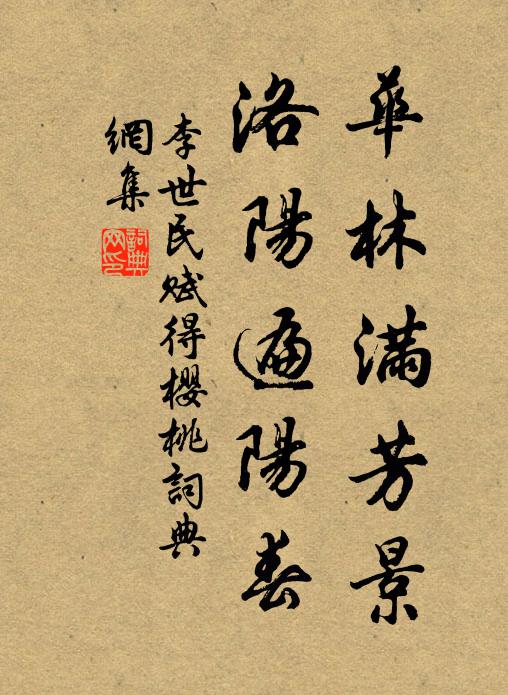 華林滿芳景
洛陽遍陽春
李世民賦得櫻桃詞典
網集
詞典
网印